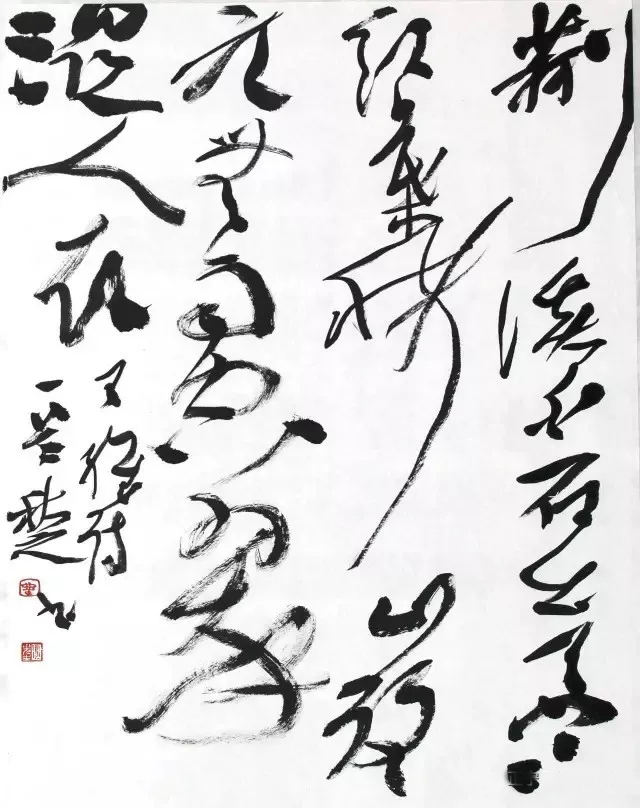 荆溪白石出天寒
红叶稀山路
元无雨空翠
湿人衣
王维诗